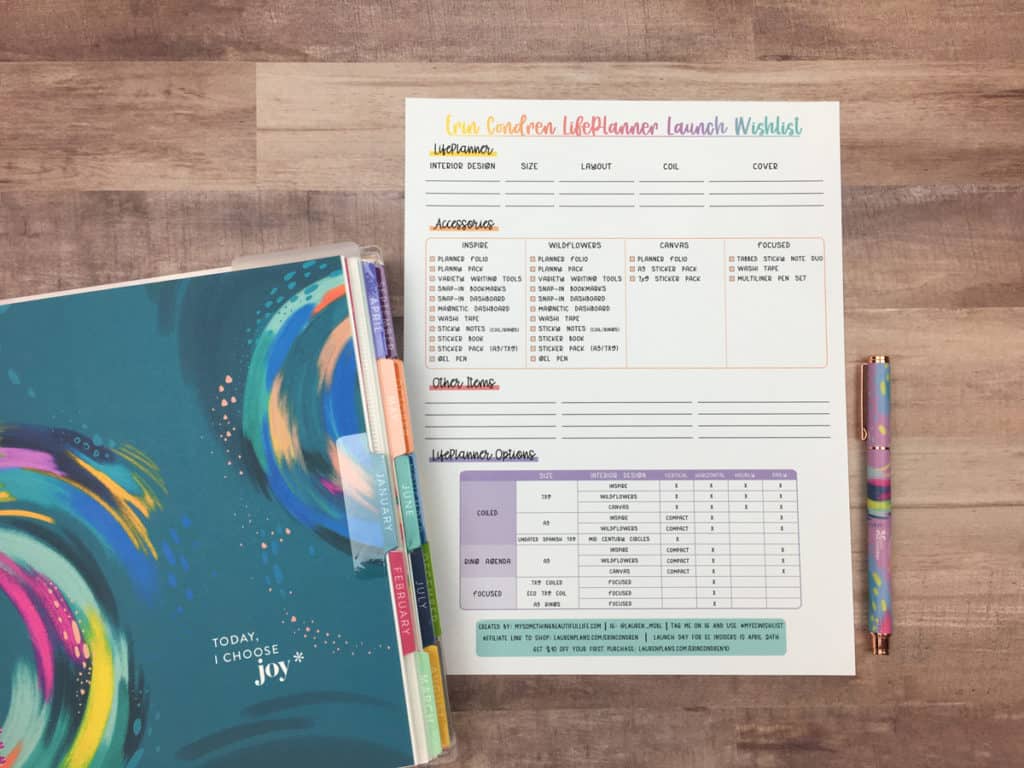 Erin Condren LifePlanner Launch Wishlist
LifePlanner
INTERIOR DESIGN SIZE LAYOUT COIL COVER
Accessories
INSPIRE
PLANNER FOLIO
PLANNY PACK
VARIETY WRITING TOOLS
SNAP-IN BOOKMARKS
SNAP-IN DASHBOARD
MAGNETIC DASHBOARD
WASHI TAPE
STICKY NOTES (COIL/RINGS)
STICKER BOOK
STICKER PACK (A5/7X9)
GEL PEN
WILDFLOWERS
PLANNER FOLIO
PLANNY PACK
VARIETY WRITING TOOLS
SNAP-IN BOOKMARKS
SNAP-IN DASHBOARD
MAGNETIC DASHBOARD
WASHI TAPE
STICKY NOTES (COIL/RINGS)
STICKER BOOK
STICKER PACK (A5/7X9)
GEL PEN
CANVAS
PLANNER FOLIO
A5 STICKER PACK
7X9 STICKER PACK
FOCUSED
TABBED STICKY NOTE DUO
WASHI TAPE
MULTILINER PEN SET
Other Items
LifePlanner Options
SIZE INTERIOR DESIGN VERTICAL HORIZONTAL HOURLY DAILY
COILED
7X9
INSPIRE X X X X
WILDFLOWERS X X X X
CANVAS X X X X
A5
INSPIRE COMPACT X X
WILDFLOWERS COMPACT X X
UNDATED SPANISH 7X9 MID CENTURY CIRCLES X
RING AGENDA
A5
INSPIRE COMPACT X X
WILDFLOWERS COMPACT X X
CANVAS COMPACT X X
FOCUSED
7X9 COILED FOCUSED X
ECO 7X9 COIL FOCUSED X
A5 RINGS FOCUSED X
CREATED BY: MYSOMETHINGBEAUTIFULLIFE.COM | IG: @LAUREN_MSBL | TAG ME ON IG AND USE #MYECWISHLIST
*AFFILIATE LINK TO SHOP: LAURENPLANS.COM/ERINCONDREN | LAUNCH DAY FOR EC INSIDERS IS APRIL 26TH
GET $10 OFF YOUR FIRST PURCHASE: LAURENPLANS.COM/ERINCONDREN10
TODAY,
I CHOOSE
joy*
SEPTEMBER
APRIL
JUNE
JANUARY
JULY
FEBRUARY
MARCH